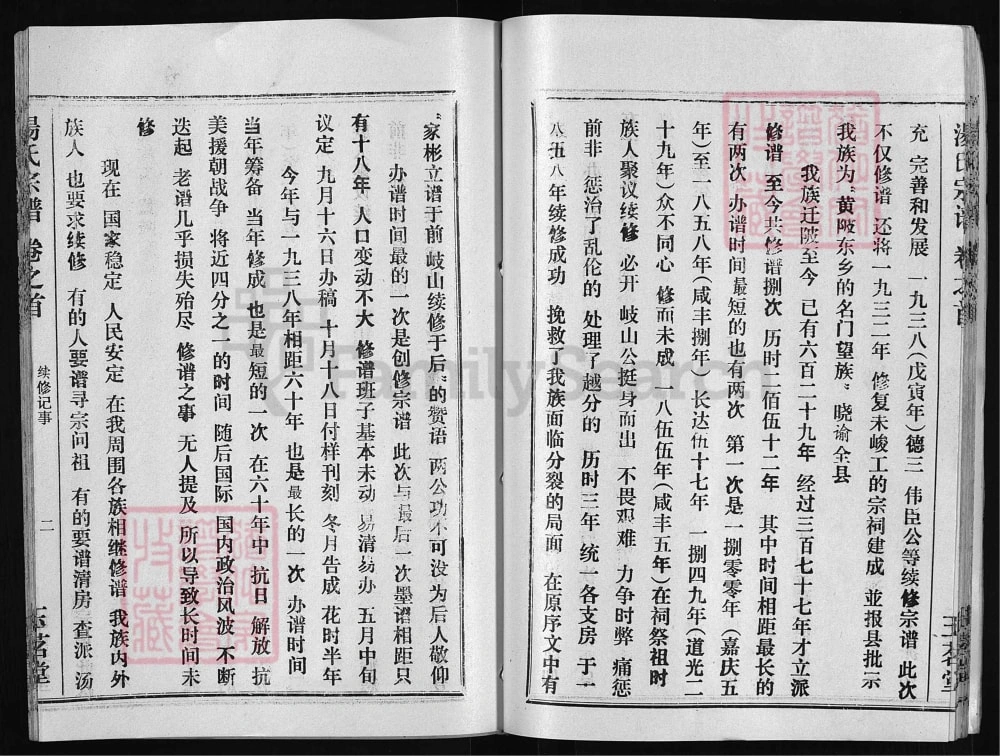 充 完善和发展 一九三八(戊寅年)德三 伟臣公等续修宗谱 此次
不仅修谱 还将一九三二年 修复未峻工的宗祠建成 並报县批示
我族为“黄陂东乡的名门望族” 晓谕全县
我族迁陂至今 已有六百二十九年 经过三百七十七年才立派
修谱 至今共修谱捌次 历时二佰伍十二年 其中时间相距最长的
有两次 办谱时间最短的也有两次 第一次是一捌零零年(嘉庆五
年)至一八五八年(咸丰捌年)长达伍十七年 一捌四九年(道光二
十九年)众不同心 修而未成 一八伍伍年(咸丰五年)在祠祭祖时
族人聚议续修 必开 岐山公挺身而出 不畏艰难 力争时弊 痛惩
前非 惩治了乱伦的 处理了越分的 历时三年 统一各支房 于一
八五八年续修成功 挽救了我族面临分裂的局面 在原序文中有
“家彬立谱于前 岐山续修于后”的赞语 两公功不可没为后人敬仰
办谱时间最的一次是创修宗谱 此次与最后一次墨谱相距只
有十八年 人口变动不大 修谱班子基本未动 易清易办 五月中旬
议定 九月十六日办稿 十月十八日付样刊刻 冬月告成 花时半年
今年与一九三八年相距六十年 也是最长的一次 办谱时间
当年筹备 当年修成 也是最短的一次 在六十年中 抗日 解放 抗
美援朝战争 将近四分之一的时间 随后国际 国内政治风波 不断
迭起 老谱几乎损失殆尽 修谱之事 无人提及 所以导致长时间未
修
现在 国家稳定 人民安定 在我周围各族相继修谱 我族内外
族人 也要求续修 有的人要谱寻宗问祖 有的要谱清房 查派 汤
湯氏宗谱 卷之首
续修记事
二
玉茗堂
FamilySearch